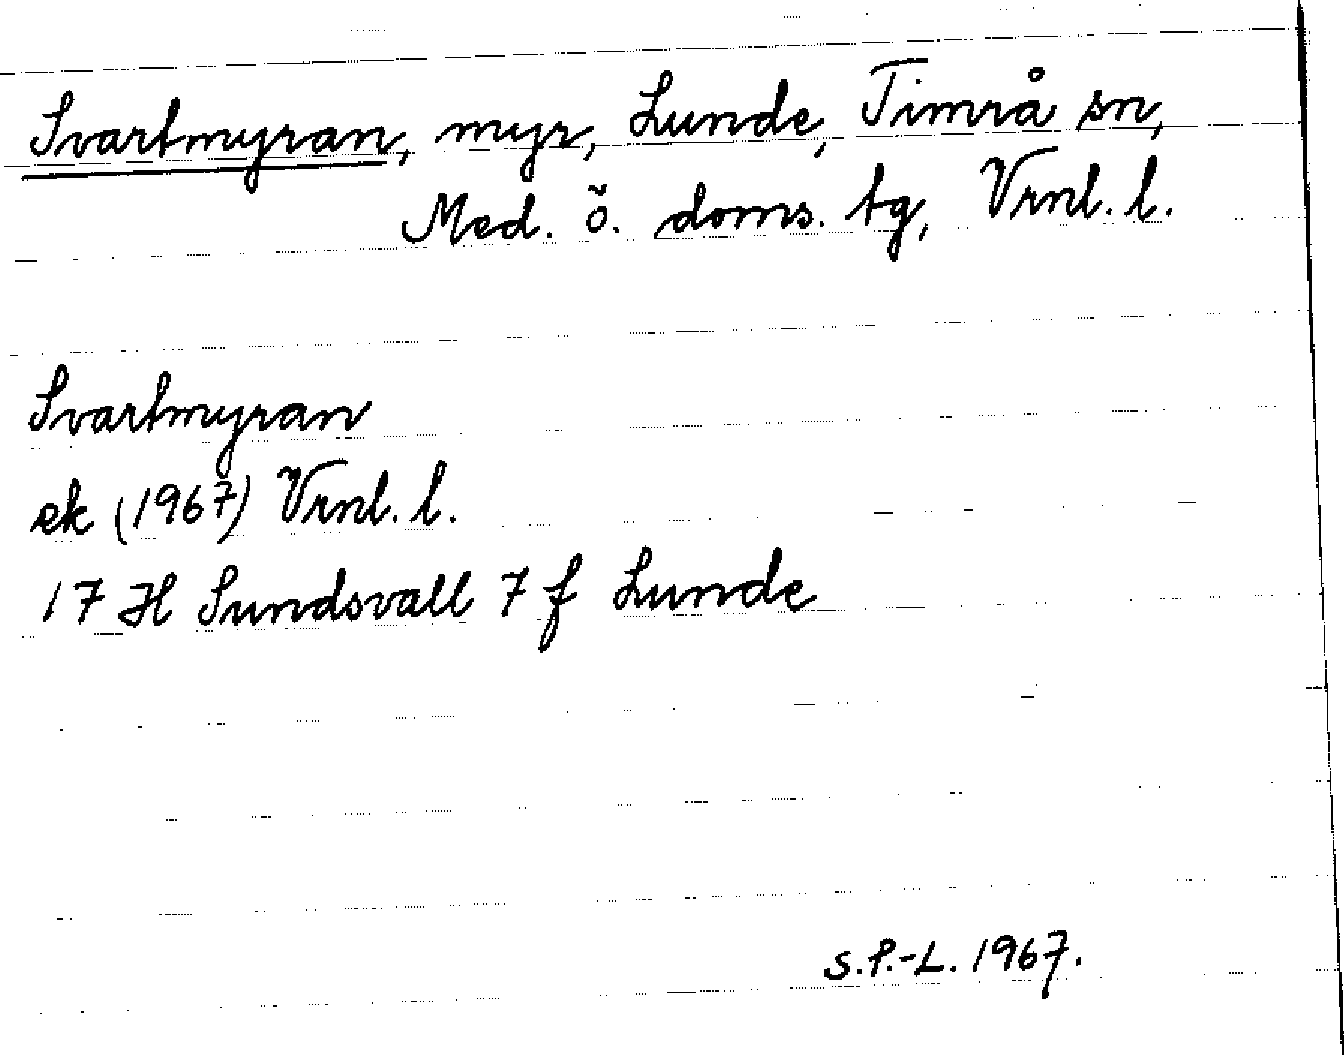 Svartmyran, myr, Lunde, Timrå sn,
Med. ö. doms. tg, Vrnl. l.
Svartmyran
ek (1967) Vrnl. l.
17 H Sundsvall 7 f Lunde
S.P.-L. 1967.